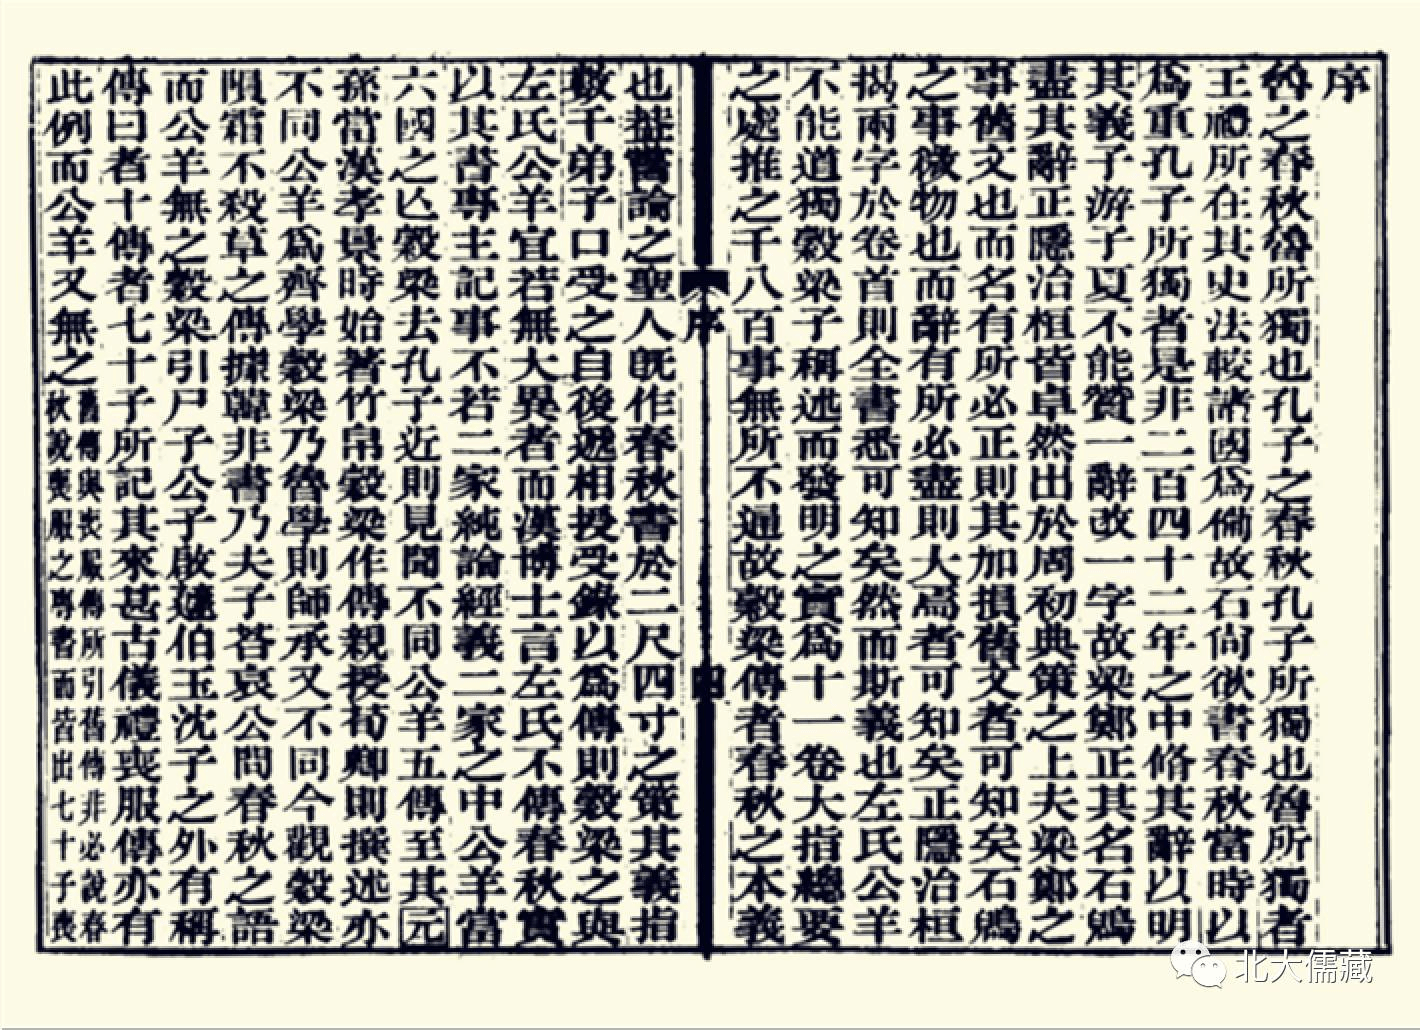 序
魯之春秋魯所獨也孔子之春秋孔子所獨也魯所獨者
王禮所在其史法較諸國爲備故石尙欲書春秋當時以
爲重孔子所獨者是非二百四十二年之中脩其辭以明
其義子游子夏不能贊一辭改一字故梁鄭正其名石鶂
盡其辭正隱治桓皆卓然出於周初典策之上夫梁鄭之
事舊文也而名有所必正則其加損舊文者可知矣石鶂
之事微物也而辭有所必盡則大焉者可知矣正隱治桓
揭兩字於卷首則全書悉可知矣然而斯義也左氏公羊
不能道獨穀梁子稱述而發明之實爲十一卷大指總要
之處推之千八百事無所不通故穀梁傳者春秋之本義
序
四
也嘗論之聖人旣作春秋書於二尺四寸之策其義指
數千弟子口受之自後遞相授受錄以爲傳則穀梁之與
左氏公羊宜若無大異者而漢博士言左氏不傳春秋實
以其書專主記事不若二家純論經義二家之中公羊當
六國之亾穀梁去孔子近則見聞不同公羊五傳至其元
孫當漢孝景時始著竹帛穀梁作傳親授荀卿則撰述亦
不同公羊爲齊學穀梁乃魯學則師承又不同今觀穀梁
隕霜不殺草之傳據韓非書乃夫子荅哀公問春秋之語
而公羊無之穀梁引尸子公子啟蘧伯玉沈子之外有稱
傳曰者十傳者七十子所記其來甚古儀禮喪服傳亦有
此例而公羊又無之
舊傳與喪服傳所引舊傳非必說春
秋說喪服之專書而皆出七十子喪
北大儒藏